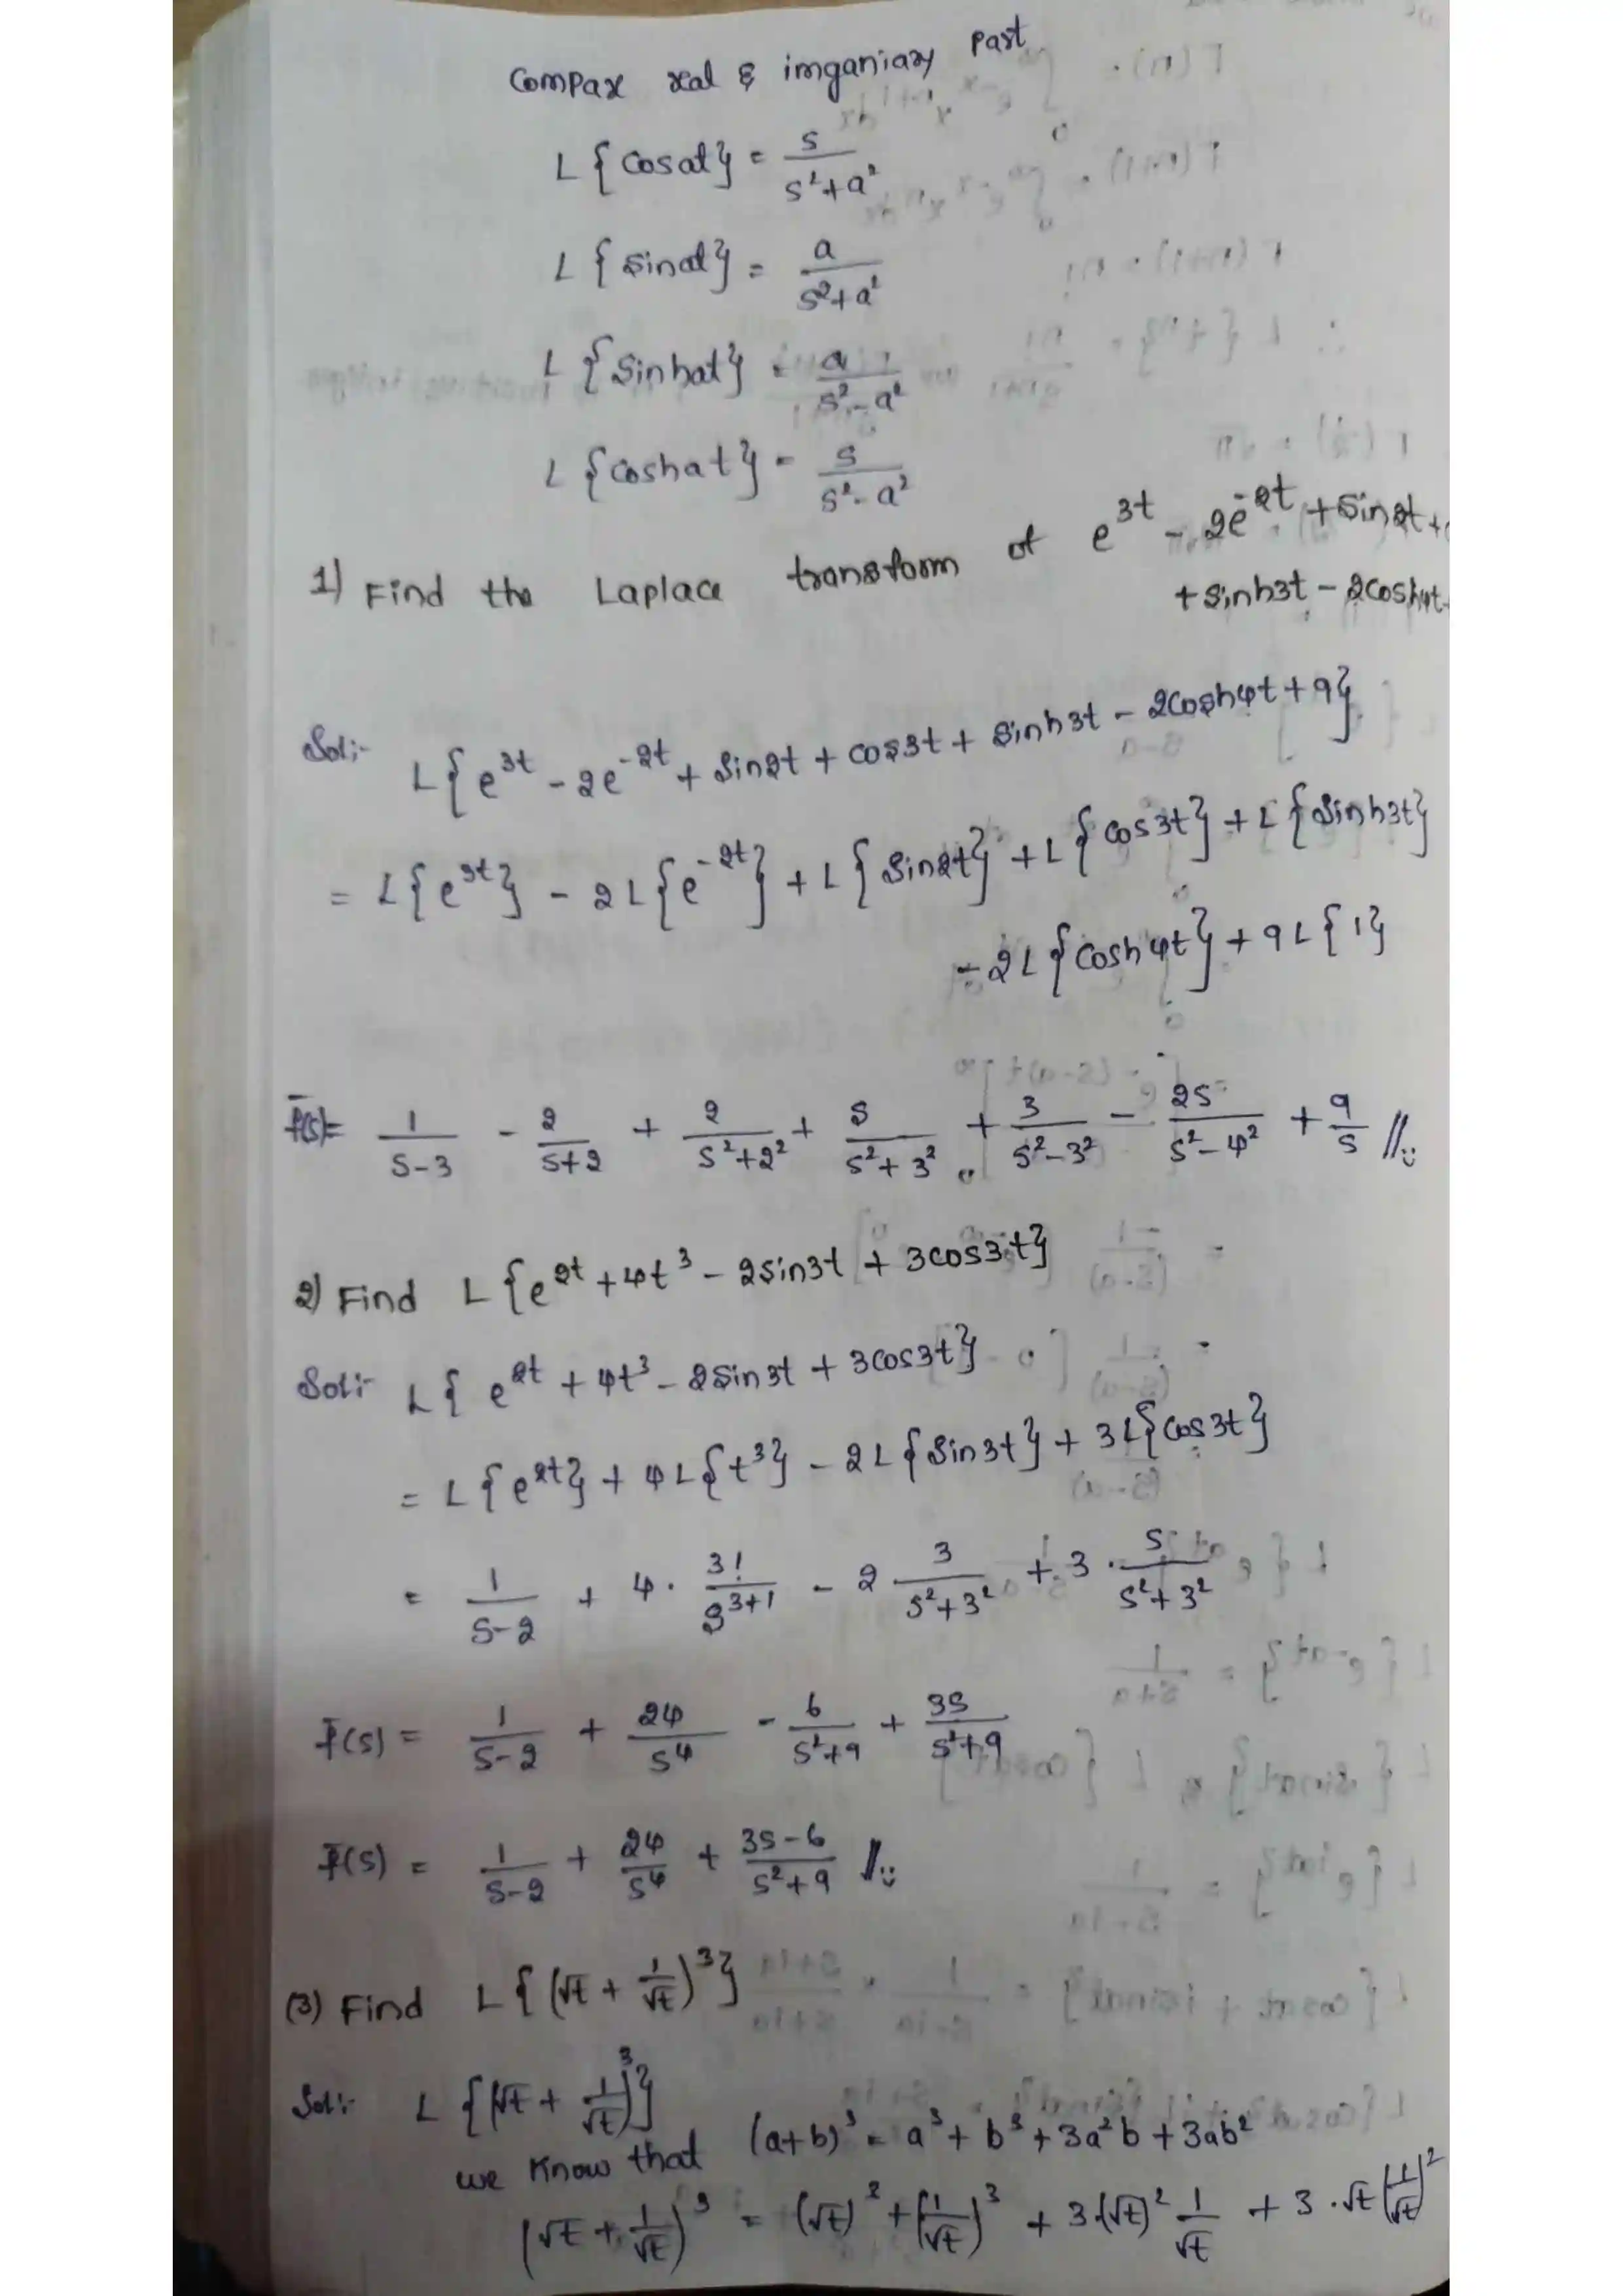 Compax real & imganiary Part
L{cosat} = s/(s²+a²)
L{sinat} = a/(s²+a²)
L{sinhat} = a/(s²-a²)
L{coshat} = s/(s²-a²)
1) Find the Laplace transform of e^3t - 2e^-2t + sin2t +
+ sinh3t - 2cosh4t
Sol:- L{e^3t - 2e^-2t + sin2t + cos3t + sinh3t - 2cosh4t + 9}
= L{e^3t} - 2L{e^-2t} + L{sin2t} + L{cos3t} + L{sinh3t}
- 2L{cosh4t} + 9L{1}
f̄(s) = 1/(s-3) - 2/(s+2) + 2/(s²+2²) + s/(s²+3²) + 3/(s²-3²) - 2s/(s²-4²) + 9/s //
2) Find L{e^2t + 4t³ - 2sin3t + 3cos3t}
Sol:- L{e^2t + 4t³ - 2sin3t + 3cos3t}
= L{e^2t} + 4L{t³} - 2L{sin3t} + 3L{cos3t}
= 1/(s-2) + 4 · 3!/s^(3+1) - 2 3/(s²+3²) + 3 · s/(s²+3²)
f̄(s) = 1/(s-2) + 24/s⁴ - 6/(s²+9) + 3s/(s²+9)
f̄(s) = 1/(s-2) + 24/s⁴ + (3s-6)/(s²+9) //
(3) Find L{(√t + 1/√t)³}
Sol:- L{(√t + 1/√t)³}
we know that (a+b)³ = a³ + b³ + 3a²b + 3ab²
(√t + 1/√t)³ = (√t)³ + (1/√t)³ + 3(√t)² 1/√t + 3·√t (1/√t)²